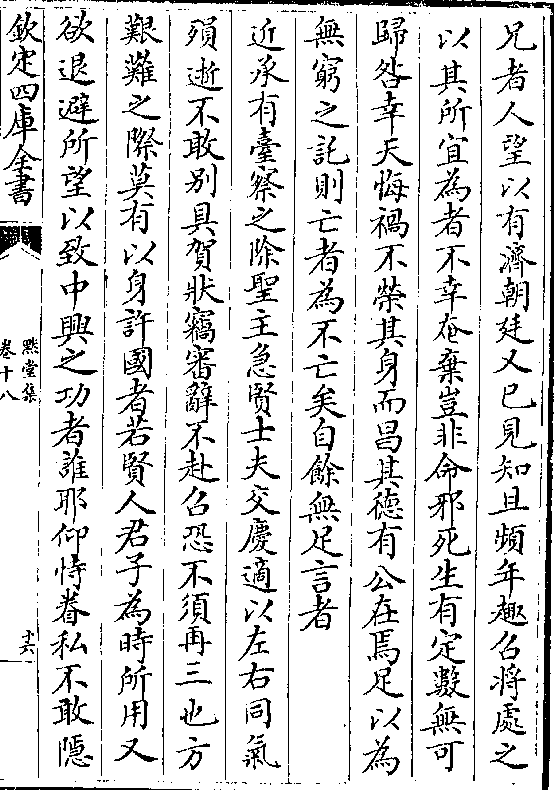 兄者人望以有濟朝廷又已見知且頻年趣召將處之
以其所宜為者不幸奄棄豈非命邪死生有定數無可
歸咎幸天悔禍不榮其身而昌其徳有公在焉足以為
無窮之託則亡者為不亡矣自餘無足言者
近承有臺察之除聖主急賢士夫交慶適以左右同氣
殞逝不敢别具賀狀竊審辭不赴召恐不須再三也方
艱難之際莫有以身許國者若賢人君子為時所用又
欲退避所望以致中興之功者誰耶仰恃眷私不敢隠
欽定四庫全書
默堂集
卷十八
十六